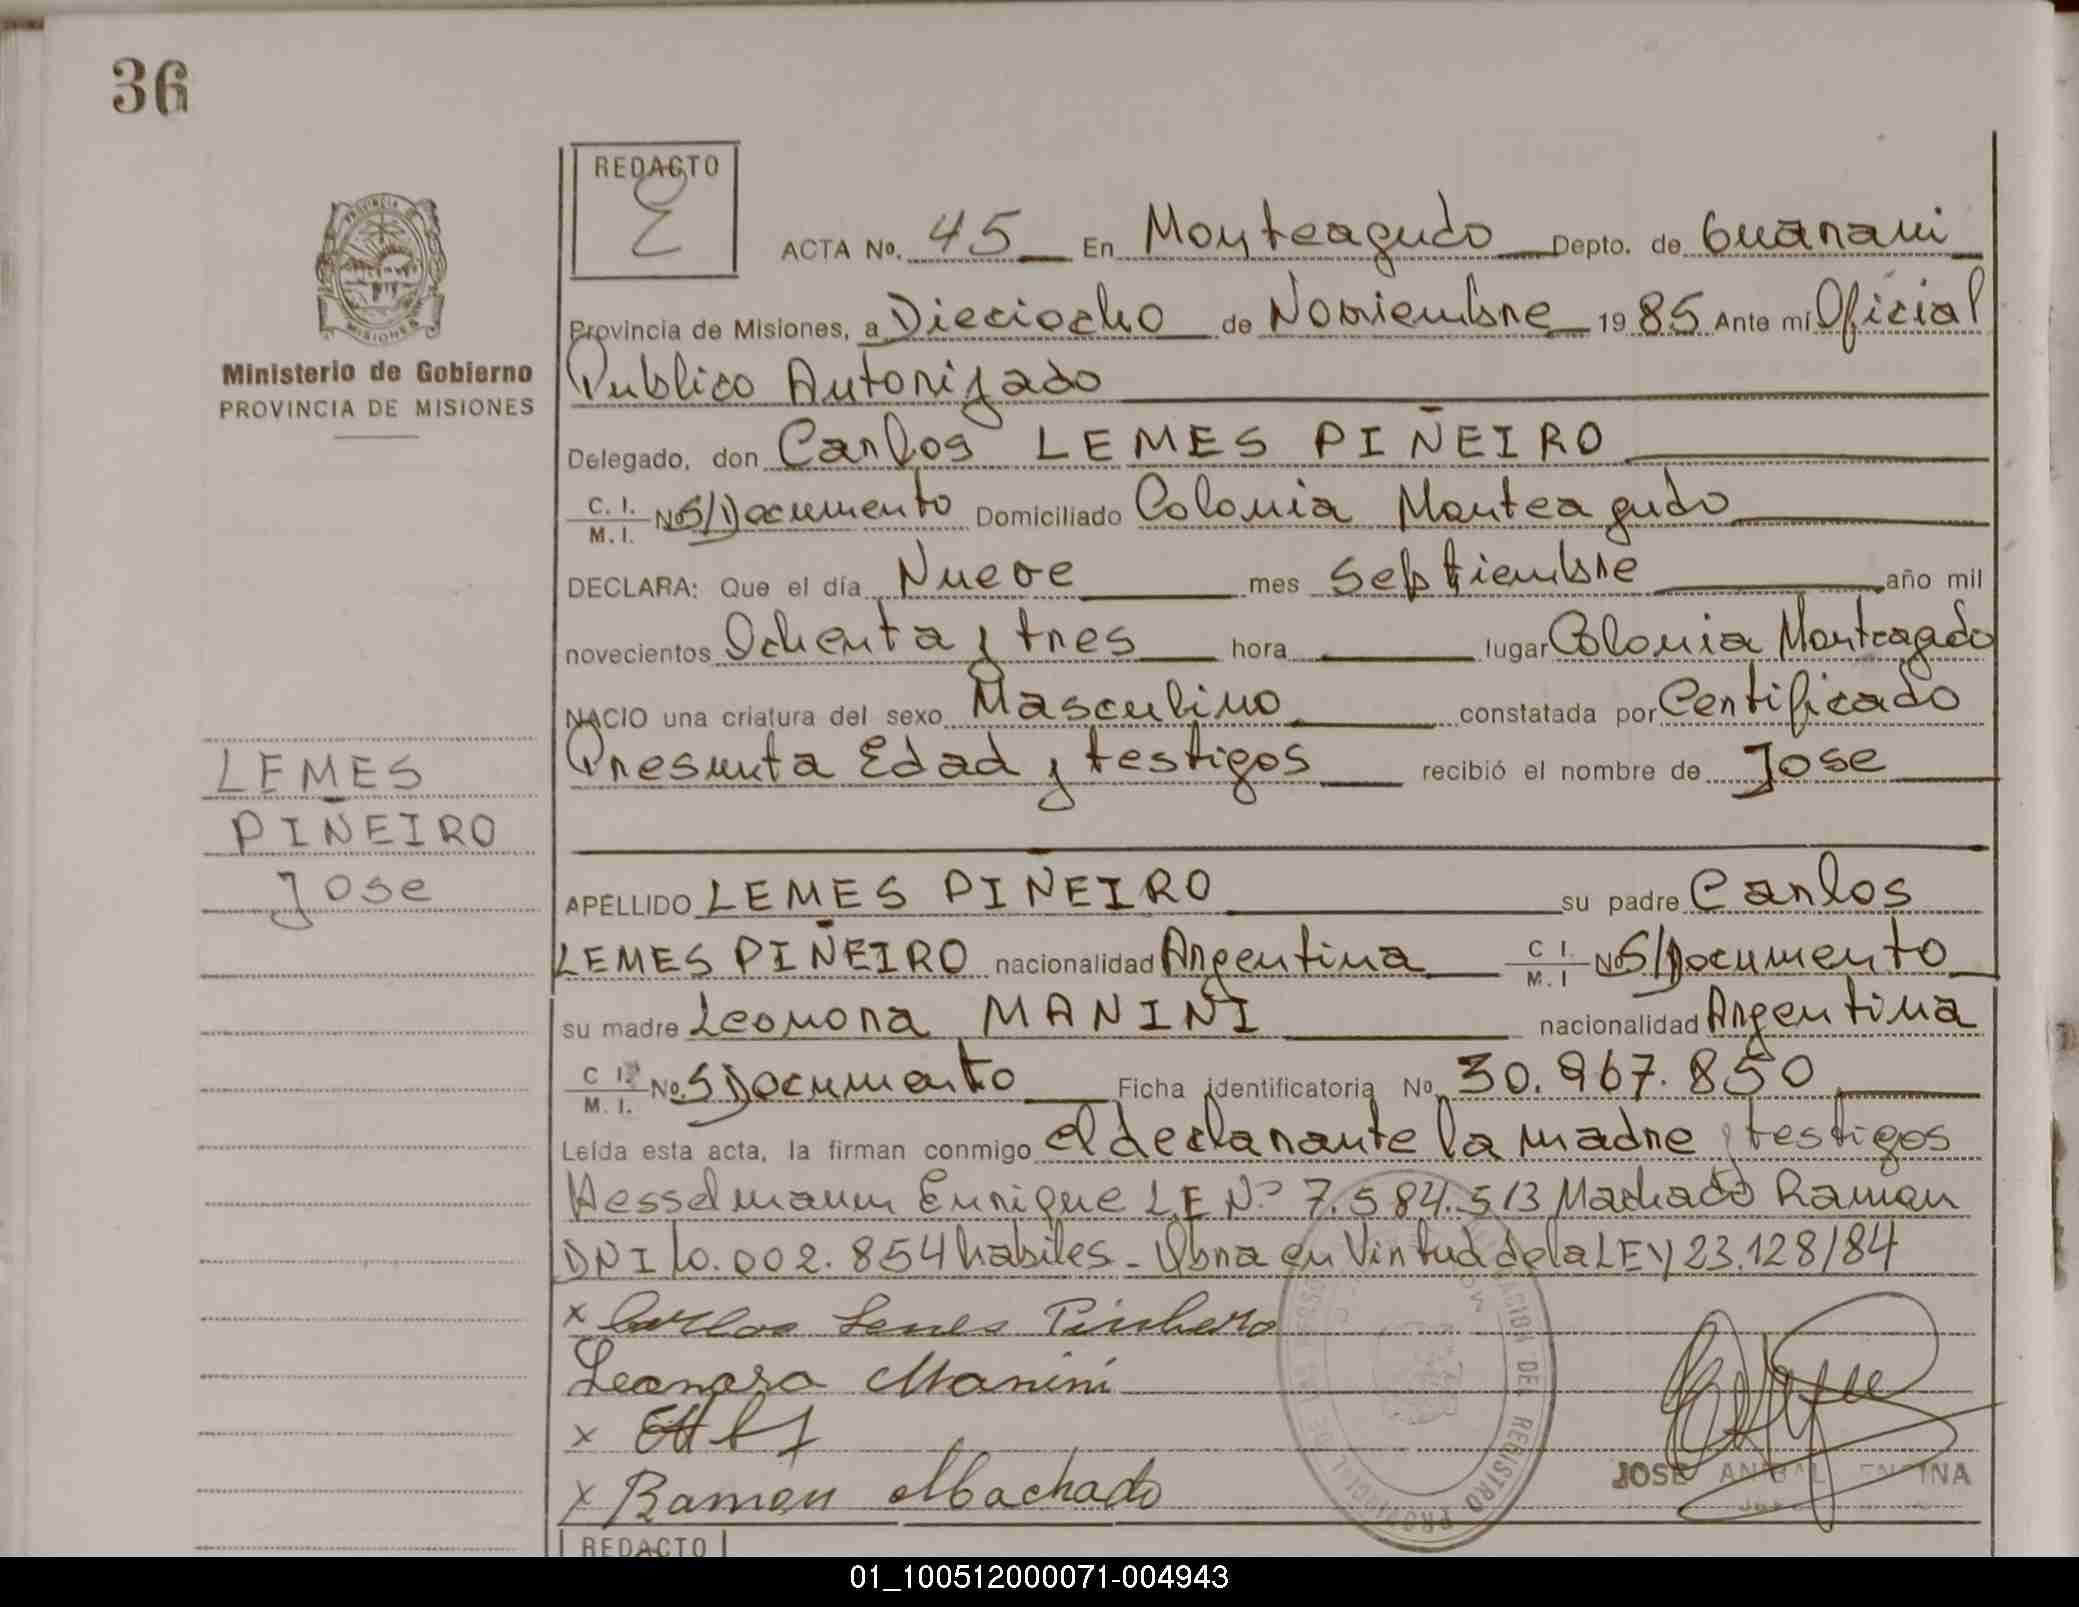 36
REDACTO
ACTA No. 45 En Monteagudo Depto. de Guarani
Provincia de Misiones, a Dieciocho de Noviembre 1985 Ante mí Oficial
Ministerio de Gobierno
PROVINCIA DE MISIONES
Publico Autorizado
Delegado, don Carlos LEMES PIÑEIRO
C. I. M. I. No S/Documento Domiciliado Colonia Monteagudo
DECLARA: Que el día Nueve mes Septiembre año mil
novecientos Ochenta y tres hora lugar Colonia Monteagudo
NACIO una criatura del sexo Masculino constatada por Certificado
Presunta Edad y testigos recibió el nombre de Jose
LEMES
PIÑEIRO
Jose
APELLIDO LEMES PIÑEIRO su padre Carlos
LEMES PIÑEIRO nacionalidad Argentina C I. M. I No S/Documento
su madre Leonora MANINI nacionalidad Argentina
C I. M. I. No. S/Documento Ficha identificatoria No. 30.967.850
Leída esta acta, la firman conmigo el declarante la madre y testigos
Hesselmann Enrique L.E Nº 7.584.513 Machado Ramon
DNI 10.002.854 habiles - Obra en Virtud de la LEY 23.128/84
x Carlos Lemes Pinheiro
Leonora Manini
x
x Ramon Machado
JOSE ANIBAL ENCINA
REDACTO
01_100512000071-004943